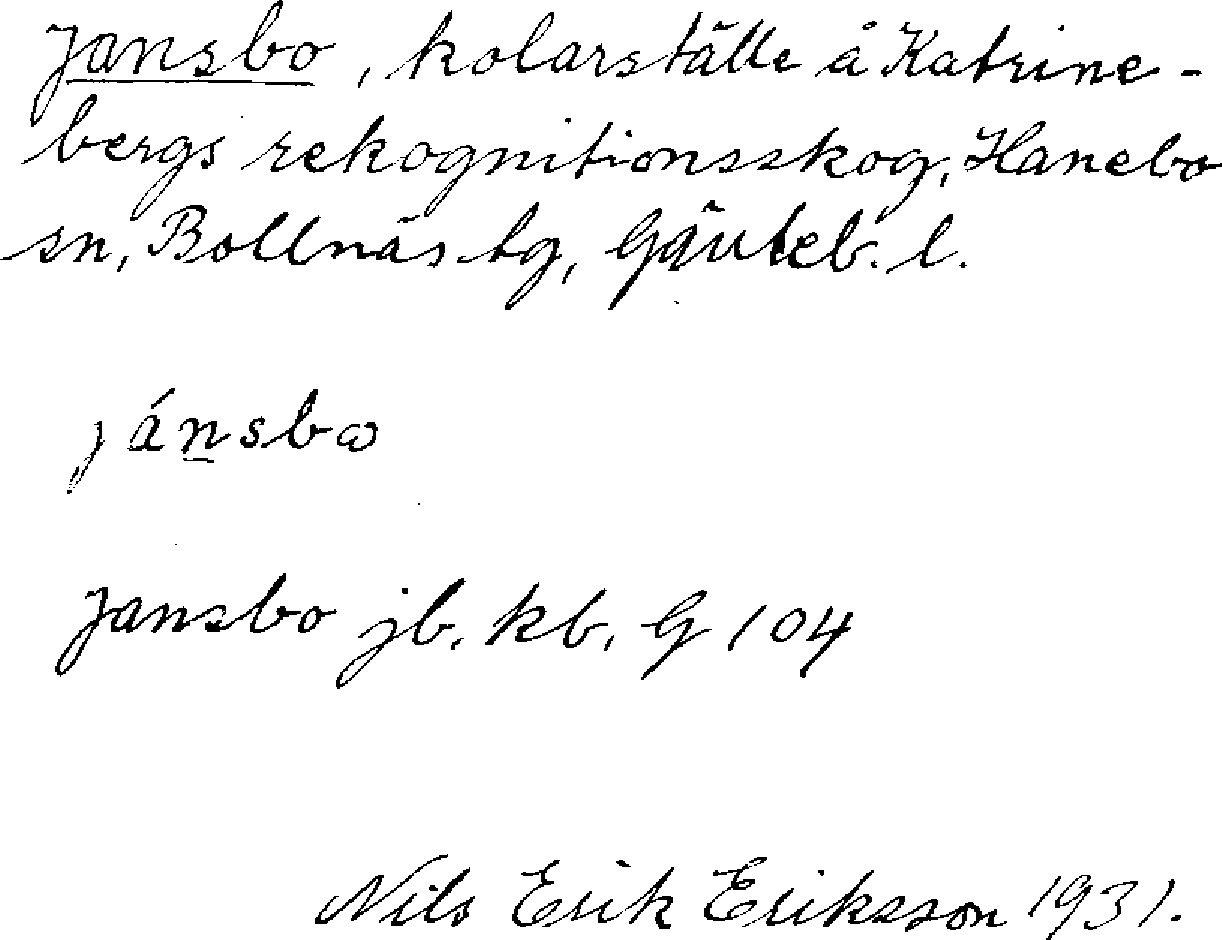 Jansbo, kolarställe å Katrine-
bergs rekognitionsskog, Hanebo
sn, Bollnäs tg, Gävleb. l.
jánsbω
Jansbo jb. kb. G 104
Nils Erik Eriksson 1931.